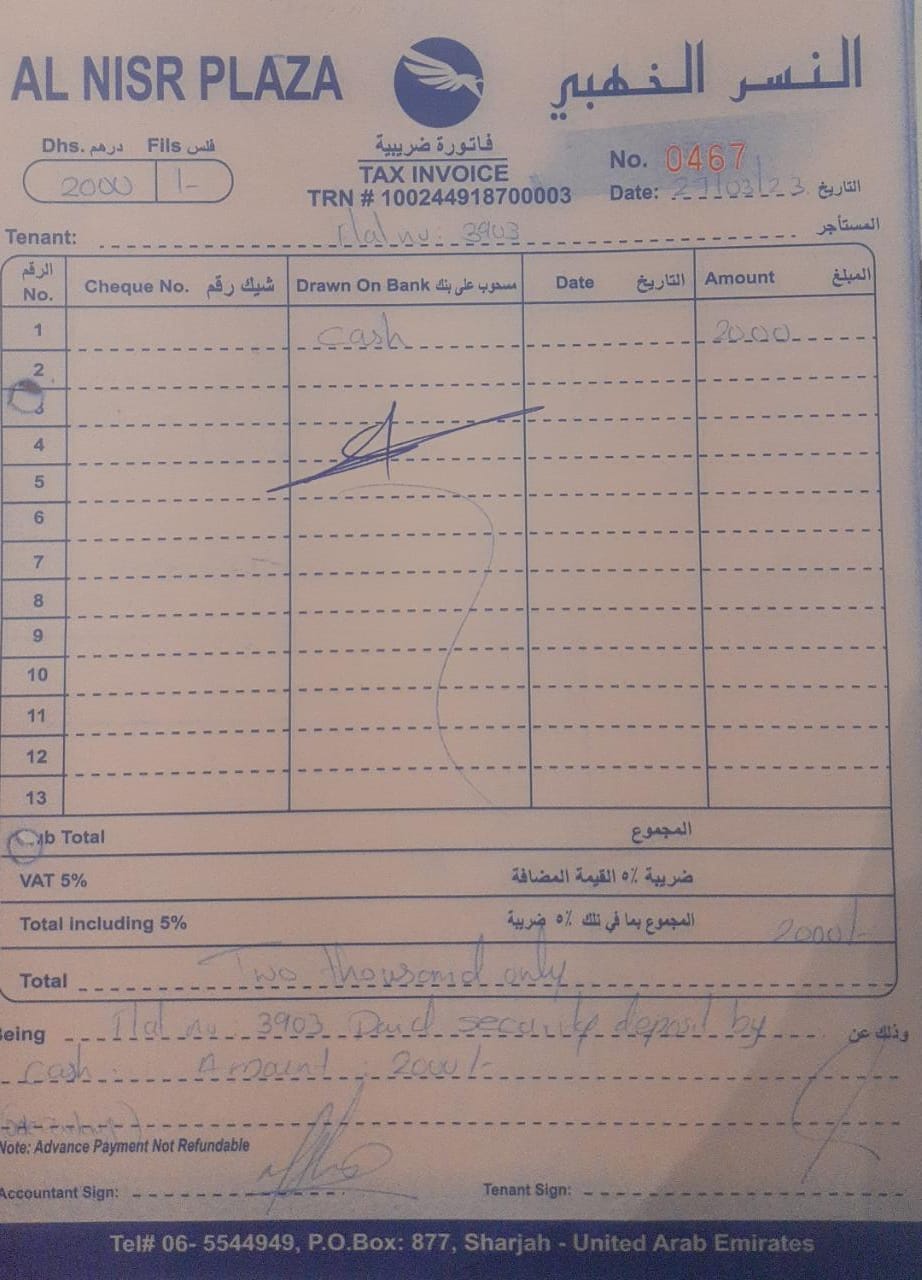 AL NISR PLAZA
النسر الذهبي
Dhs. درهم Fils فلس
2000 /-
فاتورة ضريبية
TAX INVOICE
TRN # 100244918700003
No. 0467
Date: 27/03/23 التاريخ
Tenant: Flat no: 3903 المستأجر
الرقم No. Cheque No. شيك رقم Drawn On Bank مسحوب على بنك Date التاريخ Amount المبلغ
1 cash 2000
2
3
4
5
6
7
8
9
10
11
12
13
Sub Total المجموع
VAT 5% ضريبة ٥٪ القيمة المضافة
Total including 5% المجموع بما في ذلك ٥٪ ضريبة 2000/-
Total Two thousand only
Being Flat no: 3903 Paid security deposit by وذلك عن
cash. Amount: 2000/-
Note: Advance Payment Not Refundable
Accountant Sign: Tenant Sign:
Tel# 06- 5544949, P.O.Box: 877, Sharjah - United Arab Emirates